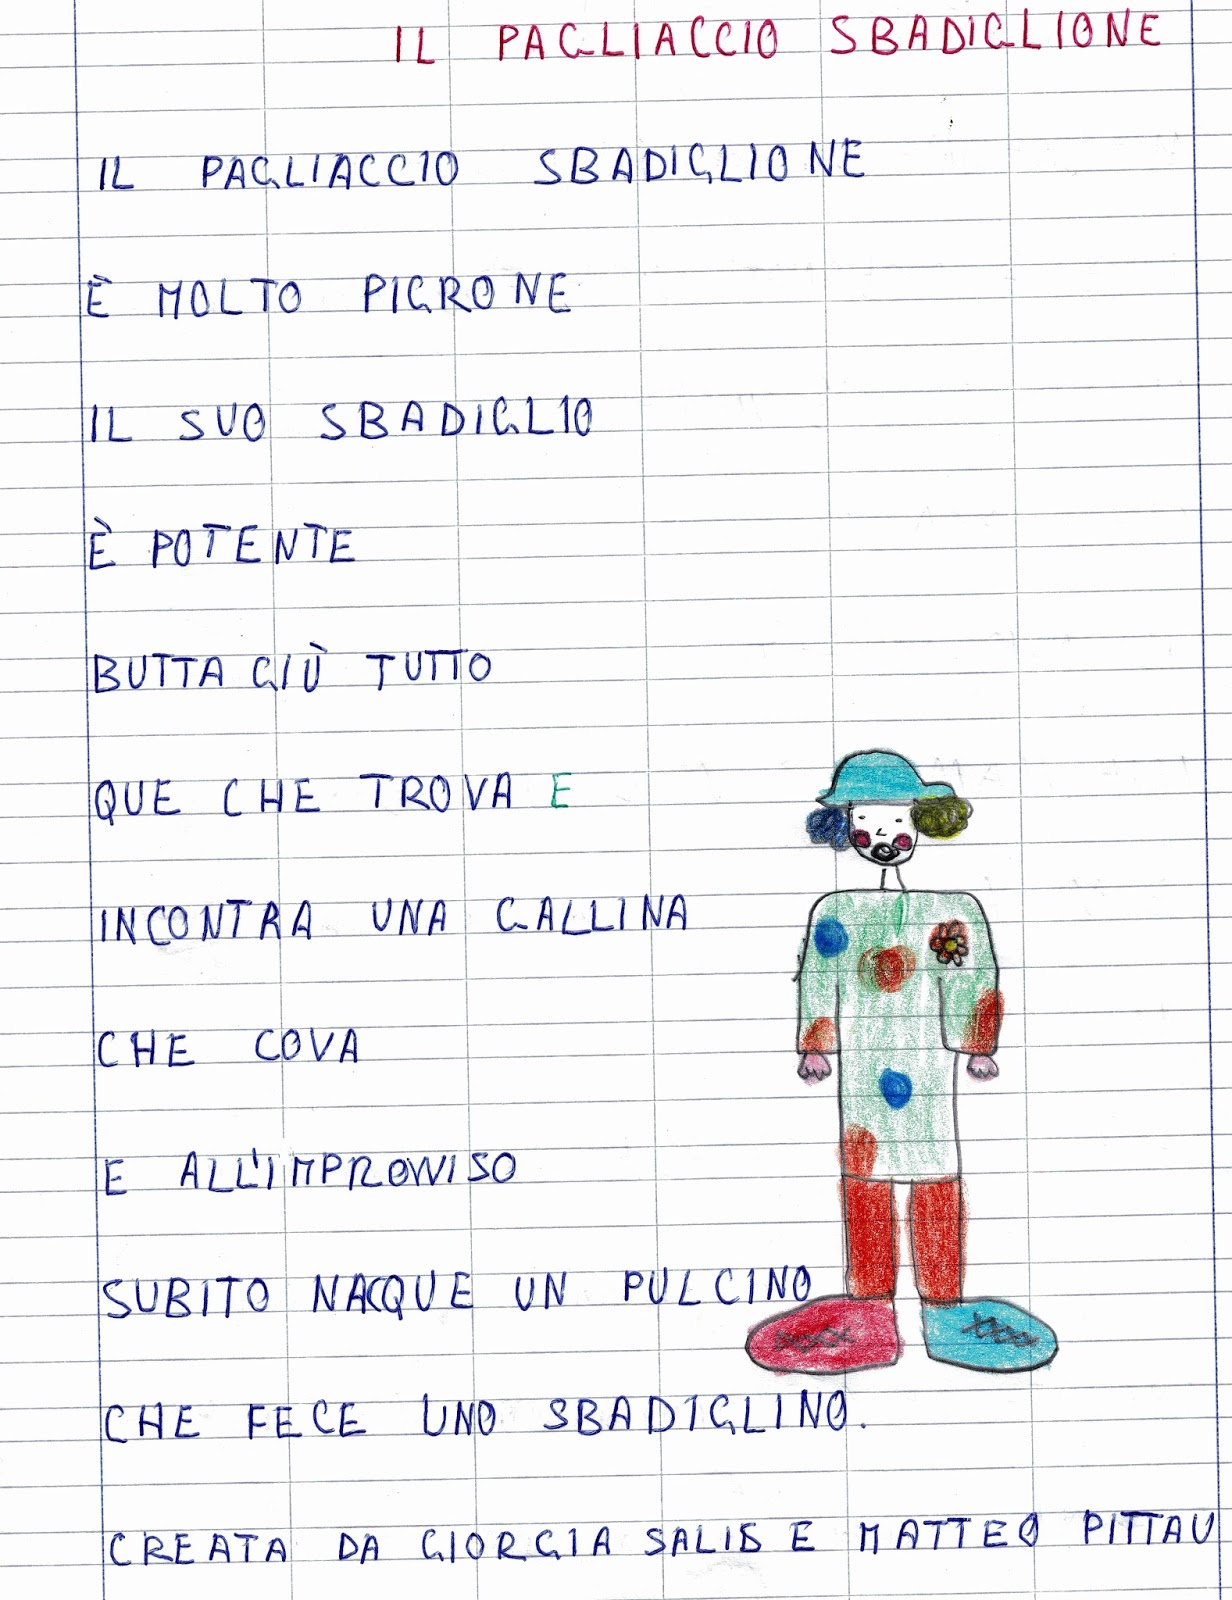 IL PAGLIACCIO SBADIGLIONE
IL PAGLIACCIO SBADIGLIONE
È MOLTO PIGRONE
IL SUO SBADIGLIO
È POTENTE
BUTTA GIÙ TUTTO
QUE CHE TROVA E
INCONTRA UNA GALLINA
CHE COVA
E ALL'IMPROVVISO
SUBITO NACQUE UN PULCINO
CHE FECE UNO SBADIGLINO.
CREATA DA GIORGIA SALIS E MATTEO PITTAU